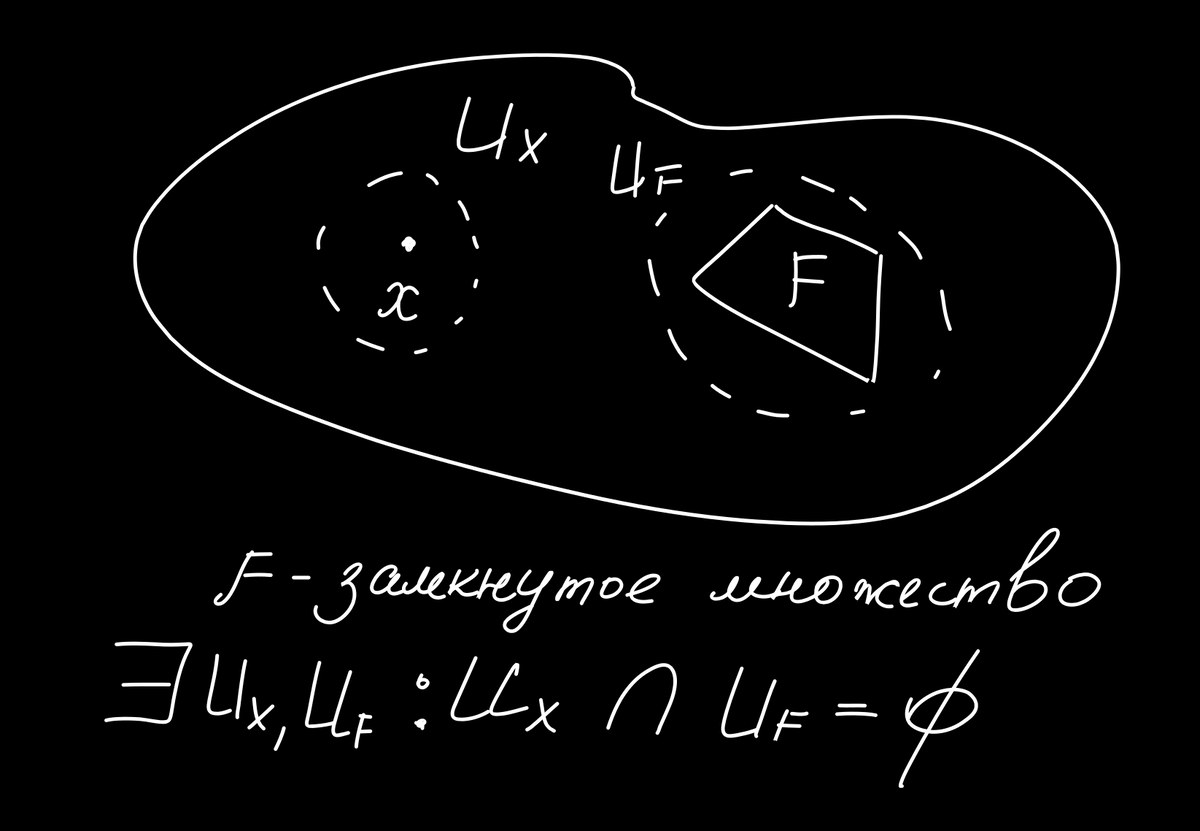 Ux
UF
x
F
F - замкнутое множество
∃ Ux, UF : Ux ∩ UF = ϕ